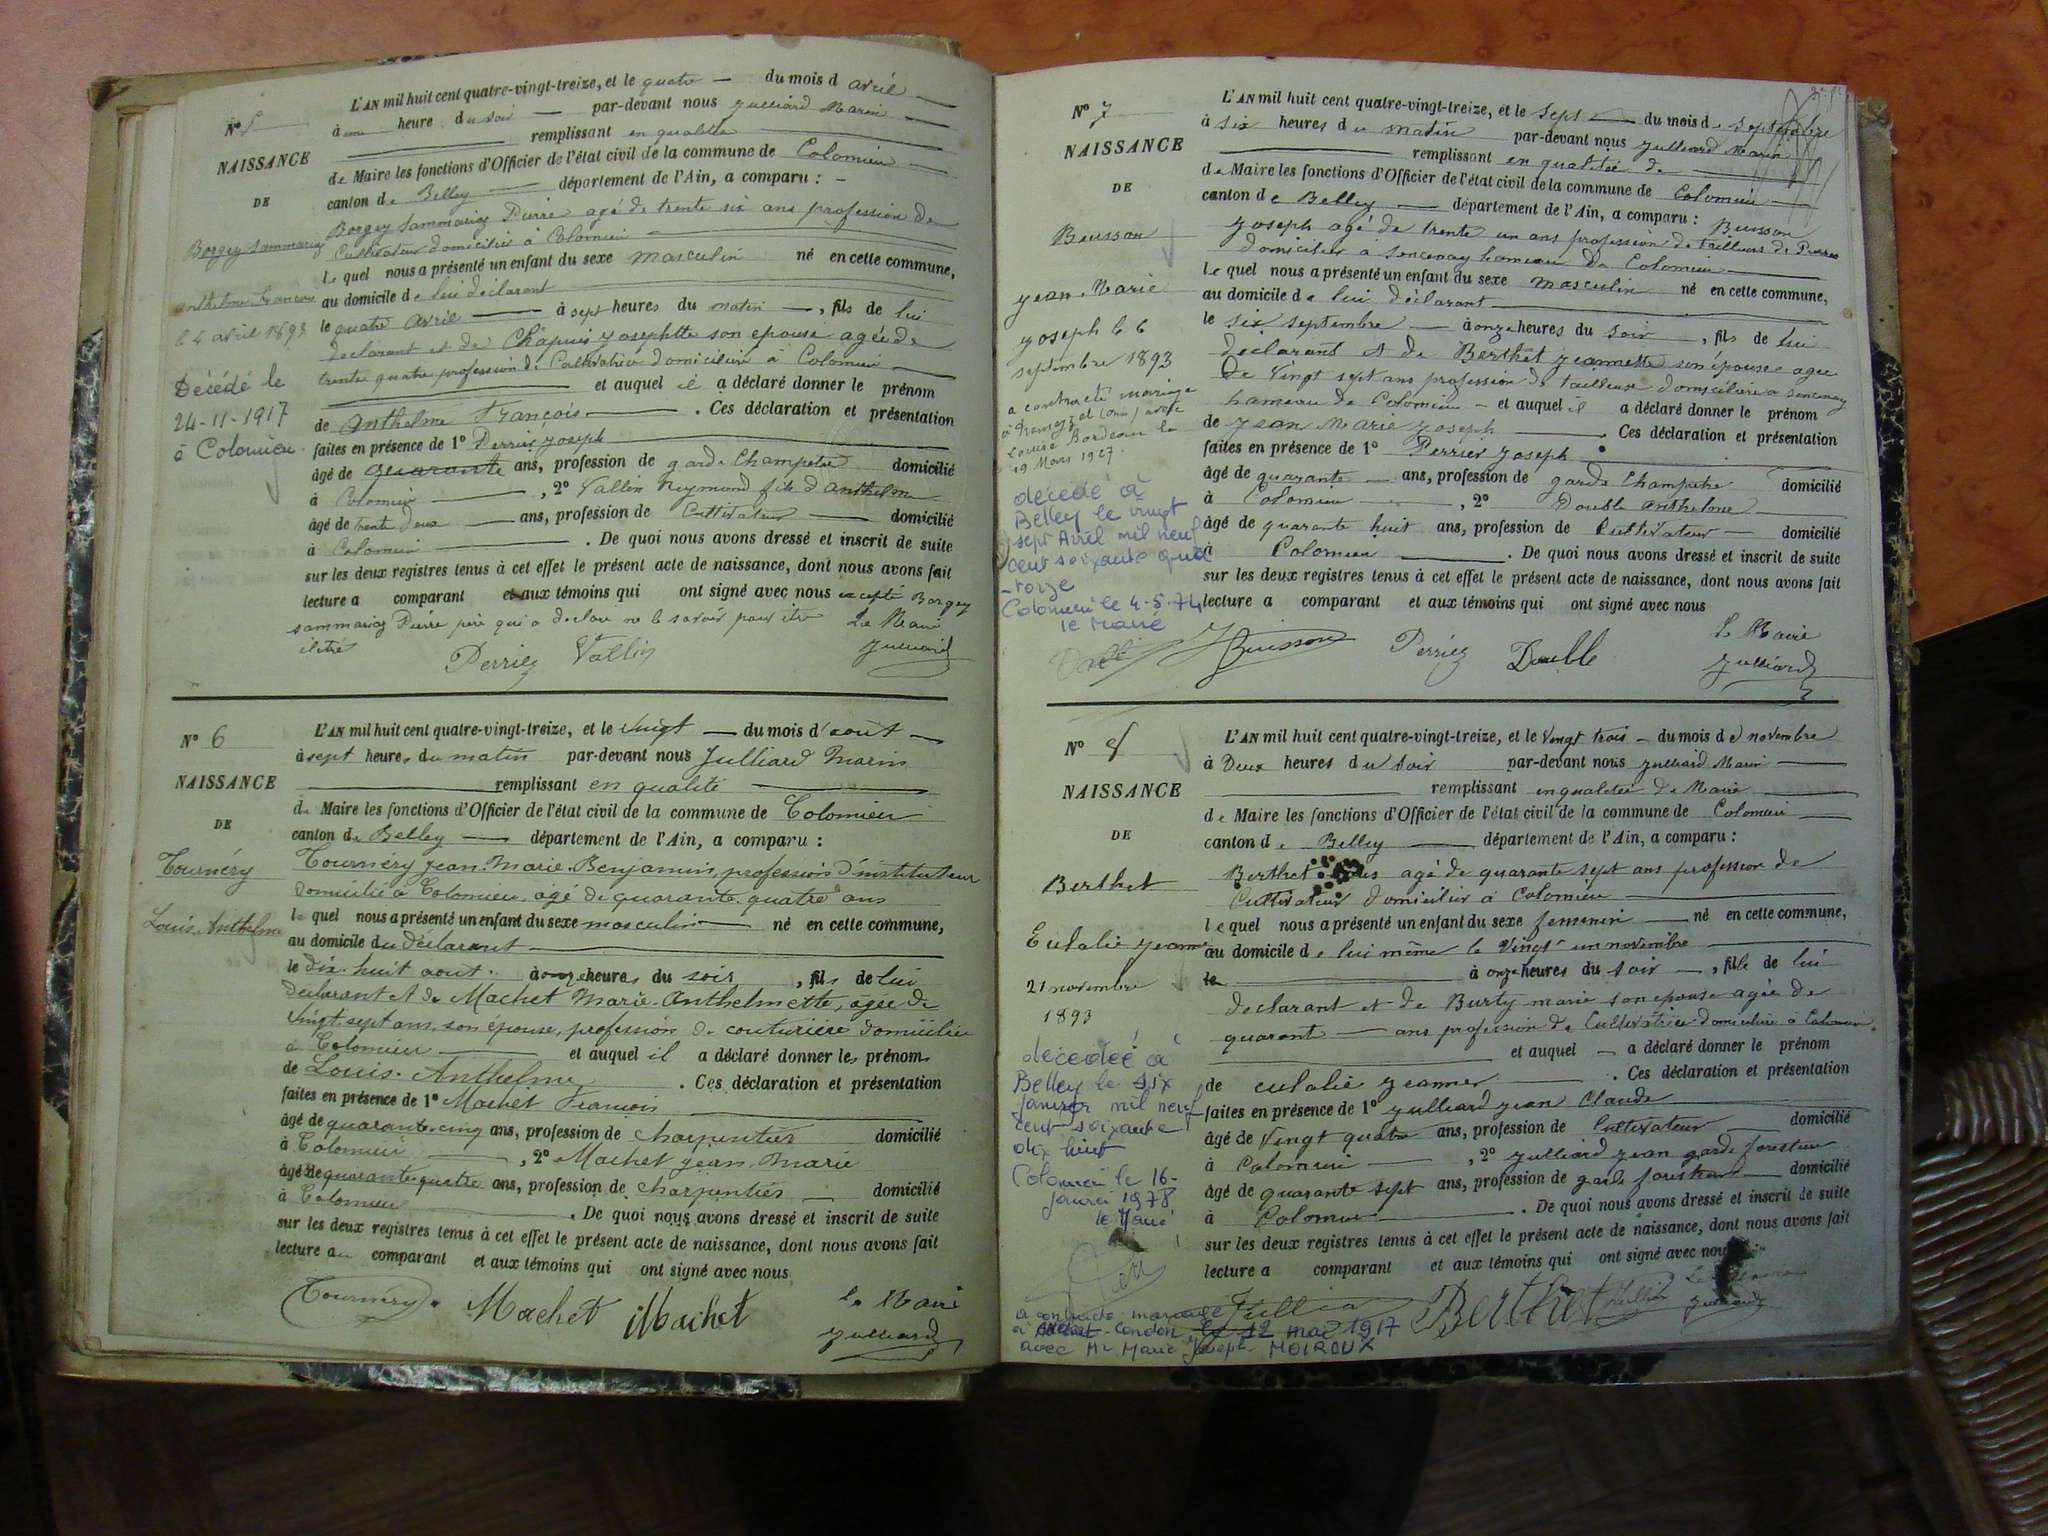 N° 5
NAISSANCE
DE
Borgey Sammariaz
Anthelme François
le 4 avril 1893
Décédé le
24-11-1917
à Colomieu
L'AN mil huit cent quatre-vingt-treize, et le quatre — du mois d avril —
à une heure du soir — par-devant nous Julliard Marin —
remplissant en qualité
de Maire les fonctions d'Officier de l'état civil de la commune de Colomieu —
canton de Belley — département de l'Ain, a comparu : —
Borgey Sammariaz Pierre agé de trente six ans profession de
Cultivateur domicilier à Colomieu —
le quel nous a présenté un enfant du sexe masculin né en cette commune,
au domicile de lui déclarant
le quatre avril — à sept heures du matin —, fils de lui
declarant et de Chapuis Josephtte son epouse agée de
trente quatre profession de Cultivatrice domiciliée à Colomieu —
et auquel il a déclaré donner le prénom
de Anthelme François — . Ces déclaration et présentation
faites en présence de 1° Perriez Joseph
âgé de quarante ans, profession de garde Champetre domicilié
à Colomieu — , 2° Vallin Reymond fils d'anthelme
âgé de trente deux — ans, profession de Cultivateur — domicilié
à Colomieu — . De quoi nous avons dressé et inscrit de suite
sur les deux registres tenus à cet effet le présent acte de naissance, dont nous avons fait
lecture a comparant et aux témoins qui ont signé avec nous excepté Borgey
sammariaz Pierre père qui a declaré ne le savoir pour être Le Maire
ilitré
Perriez Vallin Julliard
N° 6
NAISSANCE
DE
Tournéry
Louis Anthelme
L'AN mil huit cent quatre-vingt-treize, et le vingt — du mois d'août —
à sept heures du matin par-devant nous Julliard Marin
remplissant en qualité
de Maire les fonctions d'Officier de l'état civil de la commune de Colomieu
canton de Belley — département de l'Ain, a comparu :
Tournéry Jean-Marie-Benjamin, profession d'instituteur
domicilié à Colomieu, agé de quarante-quatre ans
le quel nous a présenté un enfant du sexe masculin — né en cette commune,
au domicile du déclarant
le dix-huit août à onze heures du soir , fils de lui
déclarant et de Machet Marie-Anthelmette, agée de
vingt-sept ans, son épouse, profession de couturière domiciliée
à Colomieu — et auquel il a déclaré donner les prénoms
de Louis-Anthelme . Ces déclaration et présentation
faites en présence de 1° Machet François
âgé de quarante-cinq ans, profession de charpentier domicilié
à Colomieu — , 2° Machet Jean-Marie
âgé de quarante-quatre ans, profession de charpentier — domicilié
à Colomieu . De quoi nous avons dressé et inscrit de suite
sur les deux registres tenus à cet effet le présent acte de naissance, dont nous avons fait
lecture au comparant et aux témoins qui ont signé avec nous
Tournéry Machet Machet Le Maire
Julliard
N° 7
NAISSANCE
DE
Buisson
Jean-Marie
Joseph le 6
septembre 1893
a contracté mariage
avec
Louise Bordeau le
19 Mars 1927.
décédé à
Belley le vingt
sept Avril mil neuf
cent soixante qua
-torze
Colomieu le 4-5-74
le Maire
L'AN mil huit cent quatre-vingt-treize, et le sept — du mois de septembre
à six heures du matin par-devant nous Julliard Marin
remplissant en qualitée de
de Maire les fonctions d'Officier de l'état civil de la commune de Colomieu —
canton de Belley — département de l'Ain, a comparu : Buisson
Joseph agé de trente un ans profession de tailleurs de Pierres
domicilier à Sencenay hameau de Colomieu —
le quel nous a présenté un enfant du sexe masculin né en cette commune,
au domicile de lui déclarant
le six septembre — à onze heures du soir —, fils de lui
declarant et de Berthet Jeannette son épouse agee
de vingt sept ans profession de tailleuse domiciliée a Sencenay
hameau de Colomieu — et auquel il a déclaré donner le prénom
de Jean Marie Joseph — . Ces déclaration et présentation
faites en présence de 1° Perrier Joseph
âgé de quarante — ans, profession de garde Champetre domicilié
à Colomieu — , 2° Double Anthelme
âgé de quarante huit ans, profession de Cultivateur — domicilié
à Colomieu — . De quoi nous avons dressé et inscrit de suite
sur les deux registres tenus à cet effet le présent acte de naissance, dont nous avons fait
lecture a comparant et aux témoins qui ont signé avec nous
Le Maire
JBuisson Perriez Double Julliard
N° 8
NAISSANCE
DE
Berthet
Eulalie Jeanne
21 novembre
1893
décédée à
Belley le six
janvier mil neuf
cent soixante
dix huit
Colomieu le 16-
janvier 1978
le Maire
L'AN mil huit cent quatre-vingt-treize, et le vingt trois — du mois de novembre
à Deux heures du soir par-devant nous Julliard Marin —
remplissant en qualitée de Maire
de Maire les fonctions d'Officier de l'état civil de la commune de Colomieu —
canton de Belley — département de l'Ain, a comparu :
Berthet agé de quarante sept ans profession de
Cultivateur domicilier à Colomieu —
le quel nous a présenté un enfant du sexe feminin — né en cette commune,
au domicile de lui même le vingt un novembre
le — à onze heures du soir —, fille de lui
declarant et de Burty marie son epouse agée de
quarant — ans profession de Cultivatrice domiciliée à Colomieu.
et auquel — a déclaré donner le prénom
de eulalie Jeanne — . Ces déclaration et présentation
faites en présence de 1° Julliard Jean Claude
âgé de vingt quatre ans, profession de Cultivateur — domicilié
à Colomieu — , 2° Julliard Jean garde forestier
âgé de quarante sept ans, profession de garde forestier — domicilié
à Colomieu — . De quoi nous avons dressé et inscrit de suite
sur les deux registres tenus à cet effet le présent acte de naissance, dont nous avons fait
lecture a comparant et aux témoins qui ont signé avec nous
Berthet
a contracté mariage
à Condon le 12 mai 1917
avec Mr Marie Joseph MOIROUX